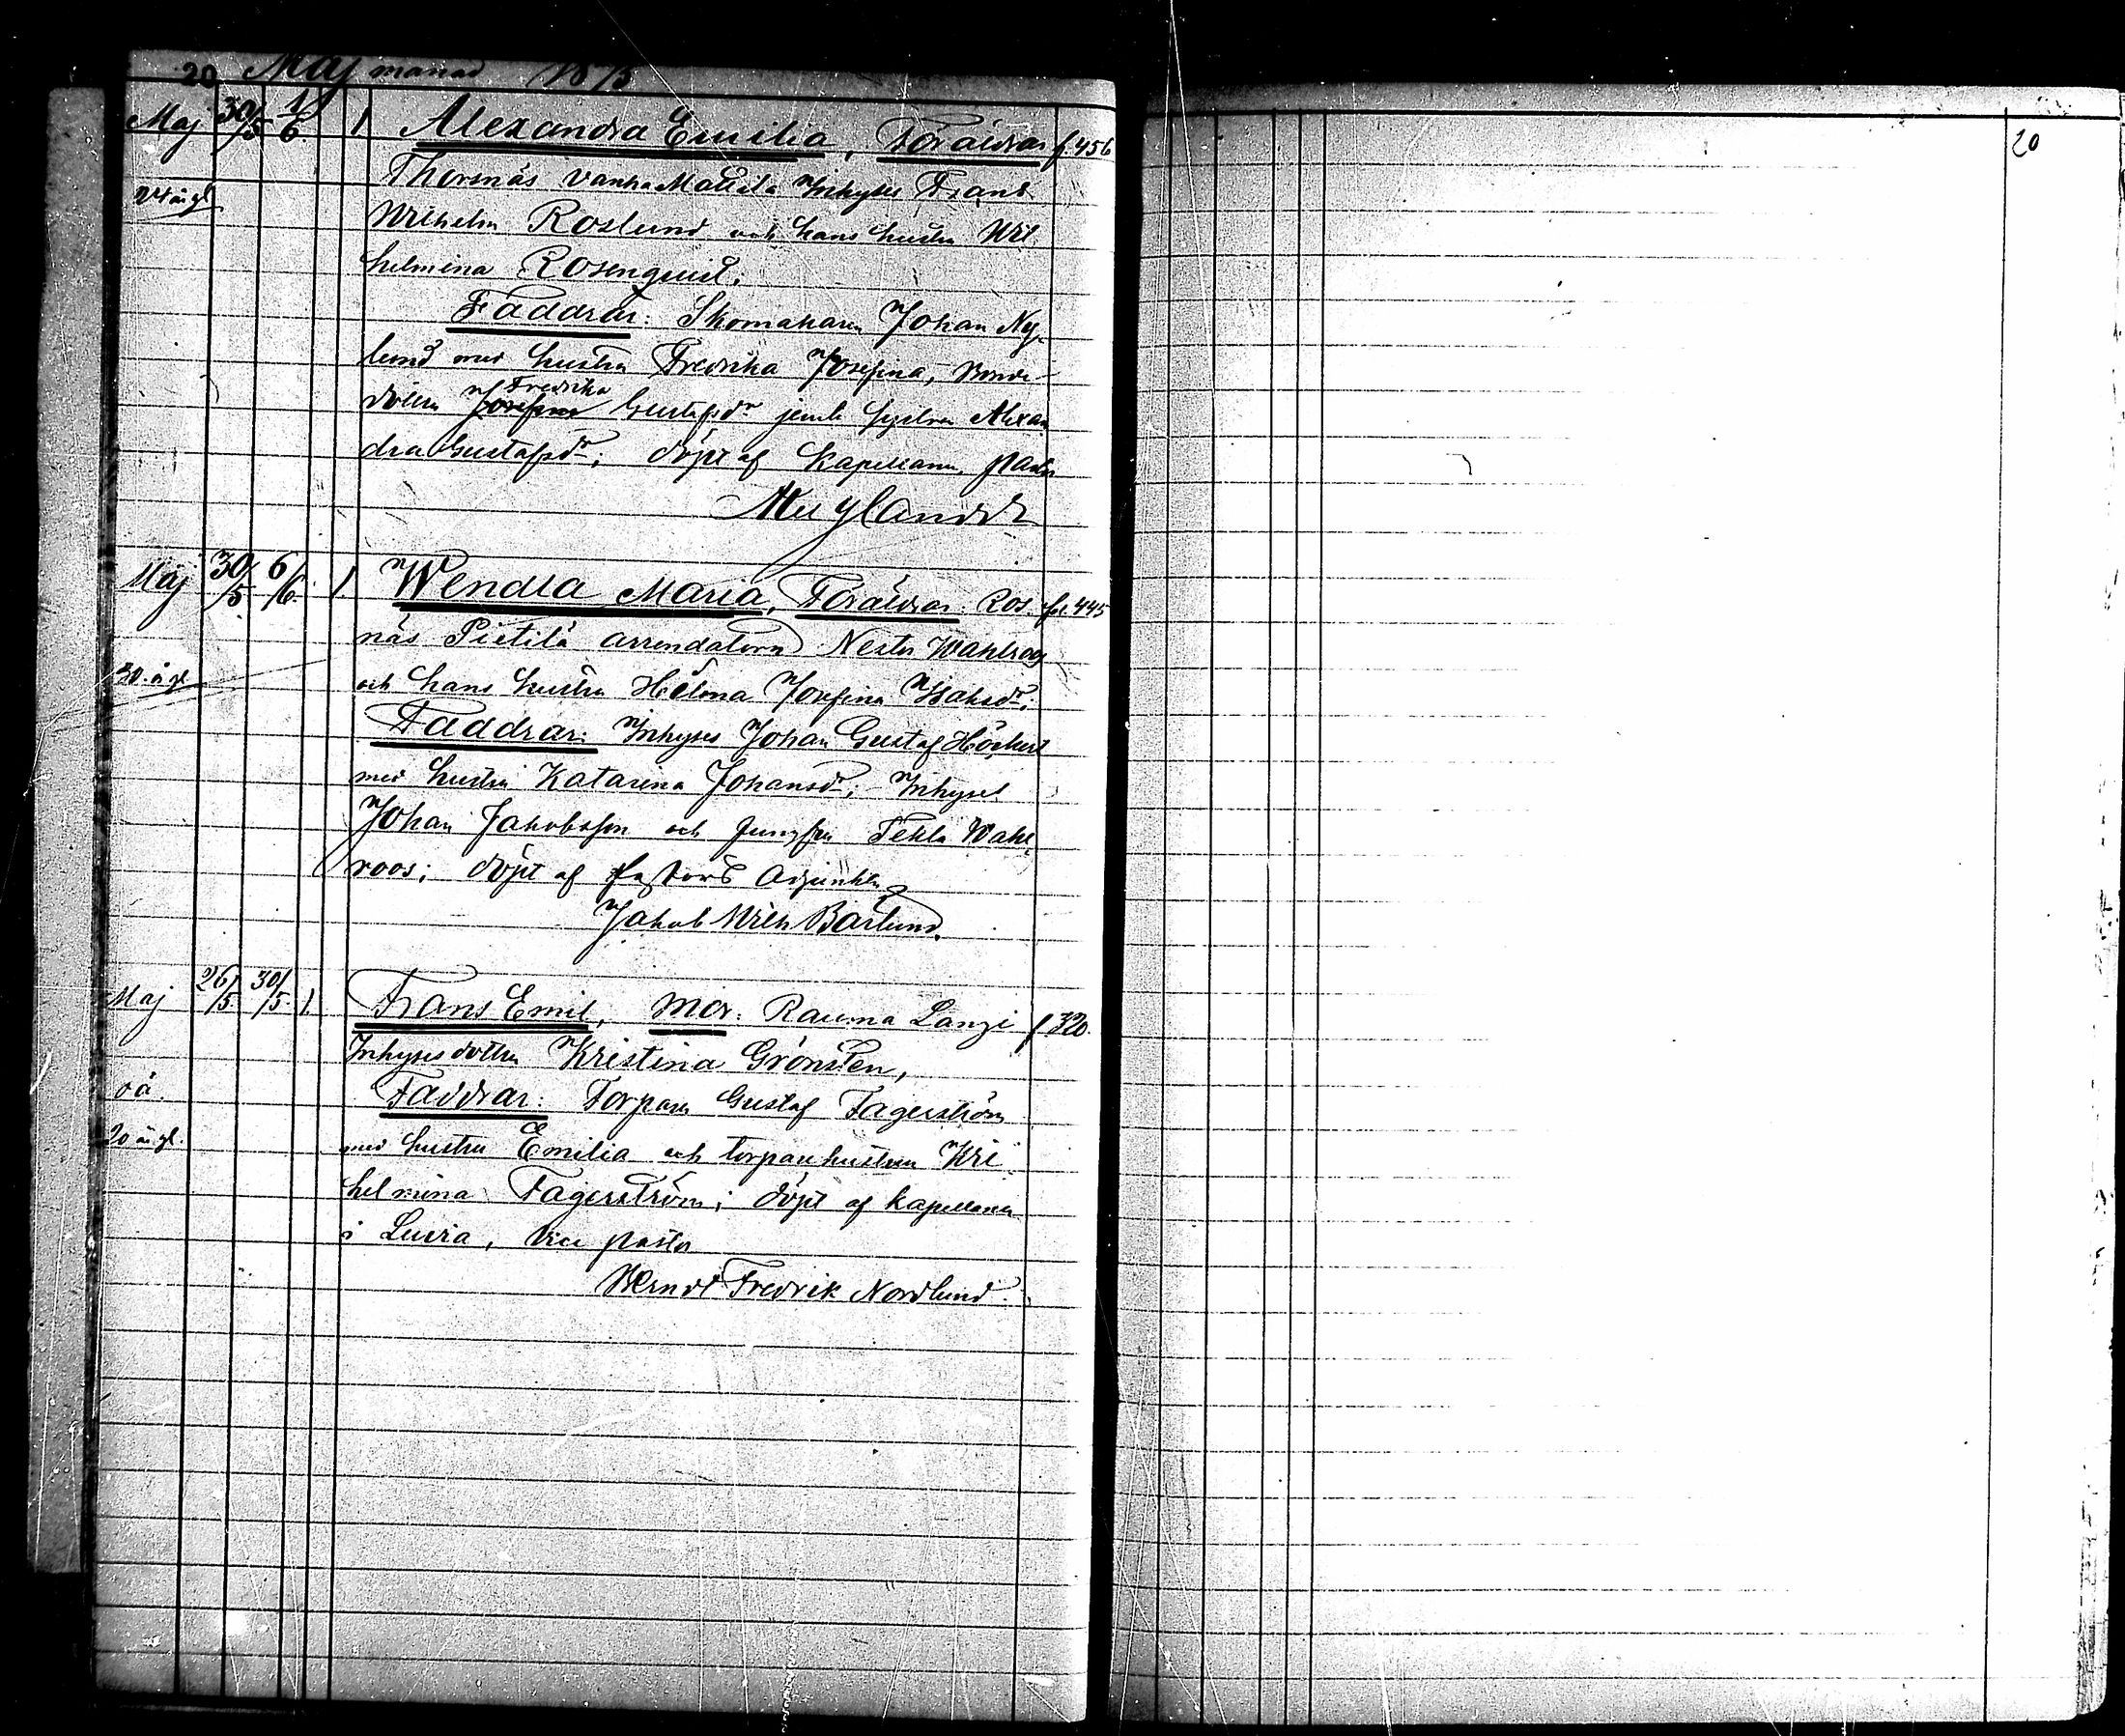 20 Maj månad 1875
Maj 30/5 1/6 1 Alexandra Emilia, Föräldrar f. 456
Thornäs Vanha Mattila Inhyses Frans
24 år gl
Wilhelm Roslund och hans hustru Wil
helmina Rosenqvist;
Faddrar: Skomakaren Johan Ny-
lund med hustru Fredrika Josefina, Bonde-
dottern Fredrika Gustafsdr jemte systren Alexan
dra Gustafsdr; döpt af Kapellanen, pastor
Maj 30/5 6/6 1 Wendla Maria, Föräldrar: Ros- fol. 445
näs Pietilä arrendatorn Nestor Wahlroos
30 år gl
och hans hustru Helena Josefina Isaksdr;
Faddrar: Inhyses Johan Gustaf Höckert
med hustru Katarina Johansdr; Inhyses
Johan Jakobsson och Jungfru Tekla Wahl-
roos; döpt af Pastors Adjunkten
Jakob Wilh Bärlund.
Maj 26/5 30/5 1. Frans Emil, Mor: Rauma Lanzi f. 320.
Inhyses dottern Kristina Grönsten,
oä.
Faddrar: Torparen Gustaf Fagerström
20 år gl.
med hustru Emilia och torparehustrun Wil-
helmina Fagerström; döpt af kapellanen
i Luvia, Vice pastor
Berndt Fredrik Nordlund.
20